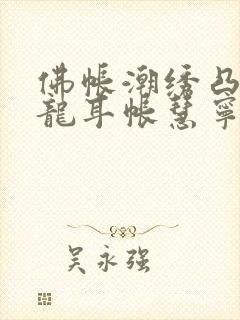 佛帳潮绣凸
龍耳帐慧寧
吴永强